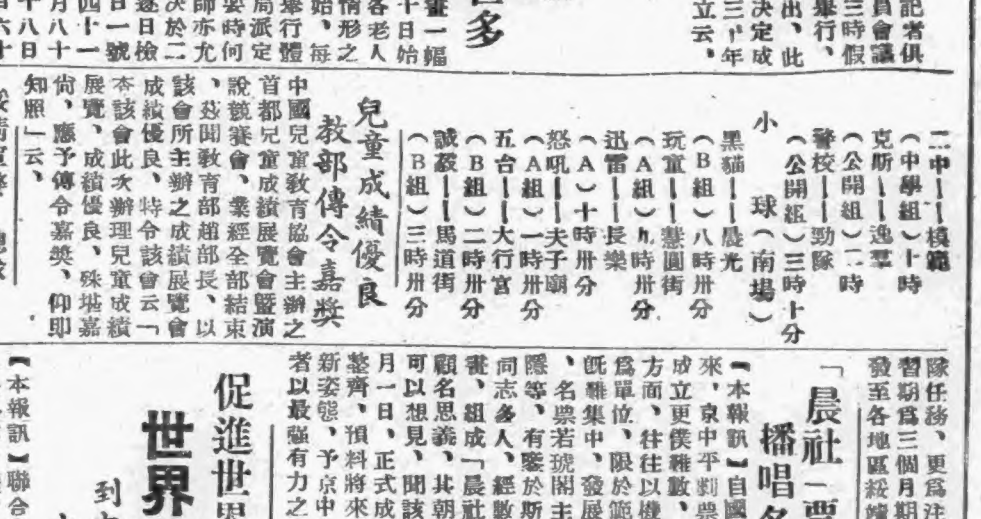 記者俱
員會議
三時假
舉行、
出、此
決定成
三、年
立云、
多
畫一幅
十日始
各老人
情形之
始、每
舉行體
局派定
要時何
師亦尤
決於二
逐日檢
日一號
四十一
月八十
十八日
二中——模範
（中學組）十時
克斯——逸羣
（公開組）二時
警校——勁隊
（公開組）三時十分
小球（南場）
黑貓——晨光
（B組）八時卅分
玩童——慧圓街
（A組）九時卅分
迅雷——長樂
（A）十時卅分
怒吼——夫子廟
（A組）一時卅分
五台——大行宮
（B組）二時卅分
誠毅——馬道街
（B組）三時卅分
兒童成績優良
教部傳令嘉獎
中國兒童敎育協會主辦之
首都兒童成績展覽會暨演
說競賽會、業經全部結束
、茲聞敎育部趙部長、以
該會所主辦之成績展覽會
成績優良、特令該會云「
查該會此次辦理兒童成績
展覽、成績優良、殊堪嘉
尙、應予傳令嘉獎、仰即
知照」云、
隊任務、更爲注
習期爲三個月期
發至各地區綏靖
「晨社」票
播唱名
【本報訊】自國
來、京中平劇票
成立更僕難數、
方面、往往以機
爲單位、限於範
旣難集中、發展
、名票若琥閣主
隱等、有鑒於斯
同志多人、經數
畫、組成「晨社
顧名思義、其朝
可以想見、聞該
月一日、正式成
整齊、預料將來
新姿態、予京中
者以最强有力之
促進世界
世界
到
【本報訊】聯合